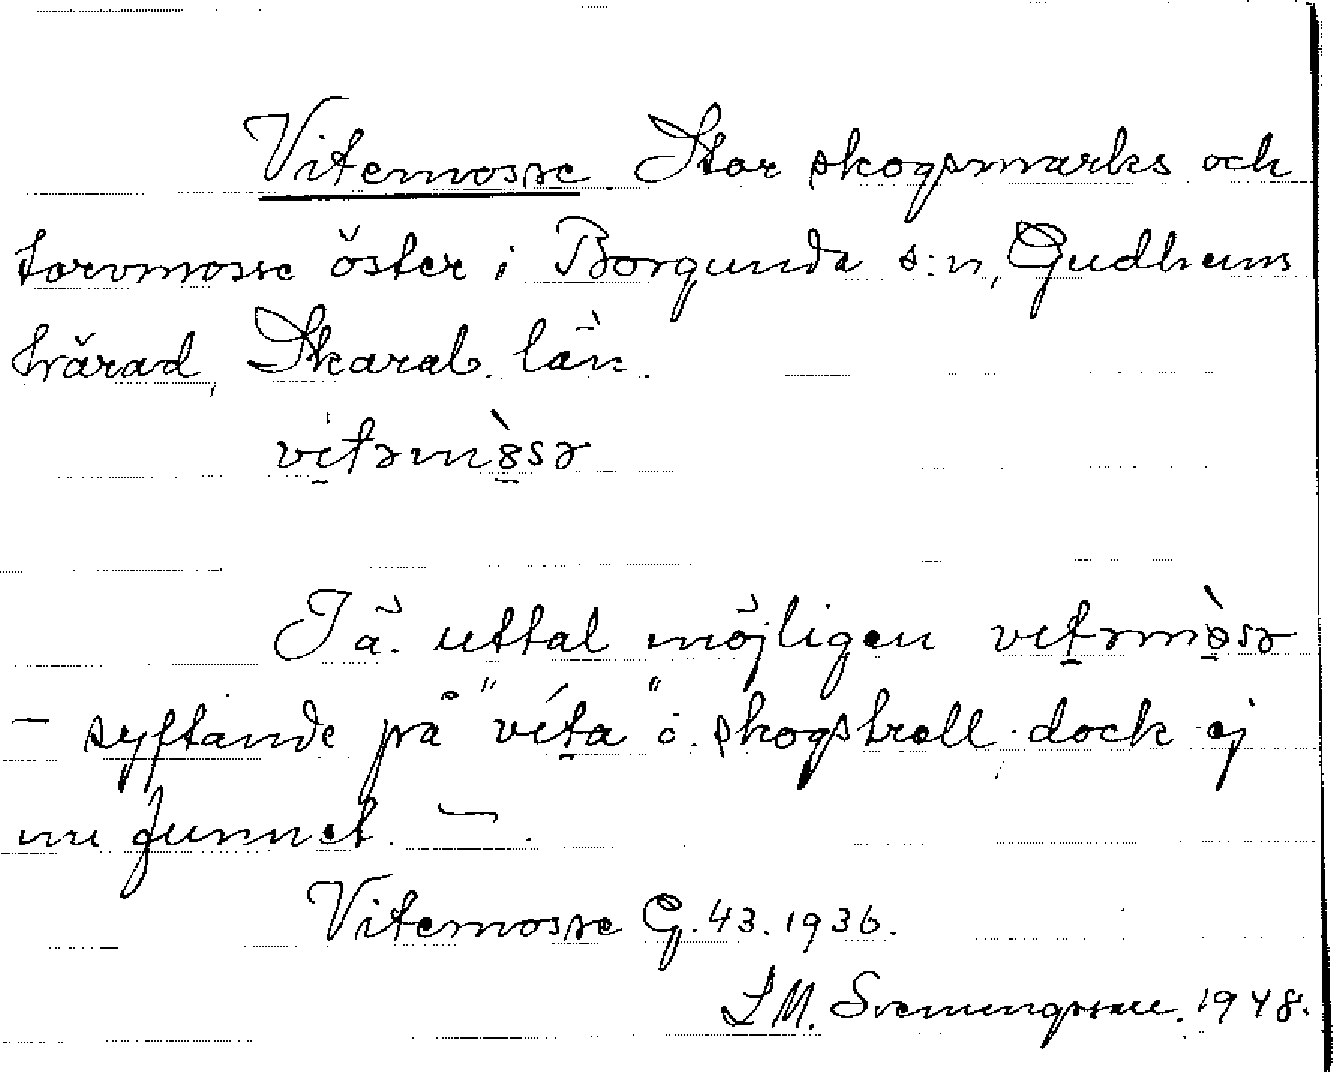 Vitemosse Stor skogsmarks och
torvmosse öster i Borgunda s:n, Gudhems
härad, Skarab. län.
vitəmòsə
I ä. uttal möjligen vetəmòsə
– syftande på "véta" o. skogstroll, dock ej
nu funnet. –.
Vitemosse G. 43. 1936.
L M. Svenungsson. 1948.